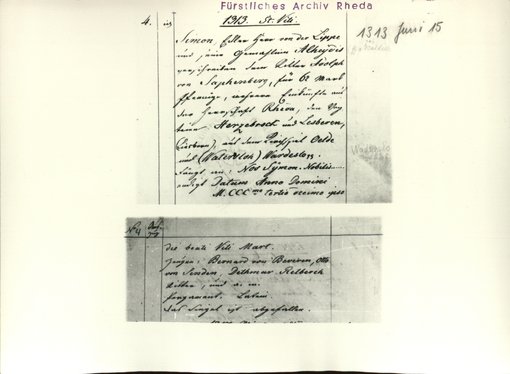 Fürstliches Archiv Rheda
4. 1313. St. Viti.
1313 Juni 15
Simon, Edler Herr von der Lippe
und seine Gemahlin Alheydis
verschreiben dem Ritter Adolph
von Saphenberg, für 60 Mark
Pfennige, mehrere Einkünfte aus
der Herrschaft Rheda, den Vog
teien Herzebrock und Lesberen,
(Lisborn), aus dem Kirchspiel Oelde
und (Watersloh) Wardeslo
fängt an: Nos Symon Nobilis
endigt Datum Anno Domini
M. CCC mo tertio decimo ipso
No 4
die beati Viti Mart.
Zeugen: Bernard von Beveren, Otto
von Senden, Dethmar Retberch
Ritter, und a. m.
Pergament. Latein.
Das Siegel ist abgefallen.